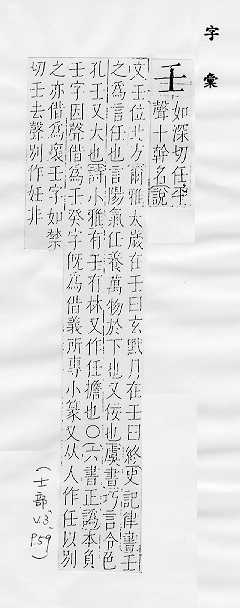 字彙
壬 如深切任平
聲十幹名說
文壬位北方爾雅太歲在壬曰玄黓月在壬曰終史記律書壬
之為言任也言陽氣任養萬物於下也又佞也虞書巧言令色
孔壬又大也詩小雅有壬有林又作任擔也○六書正譌本負
壬字因聲借為壬癸字旣為借義所專小篆又从人作任以別
之亦借為褱壬字如禁
切壬去聲別作妊非
(士部、
V.3,
P59)